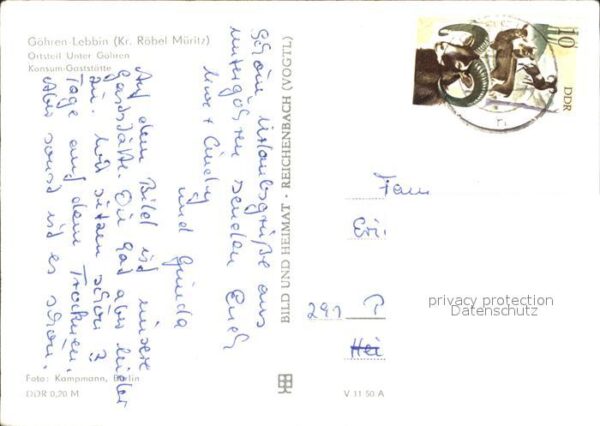 Göhren-Lebbin (Kr. Röbel Müritz)
Ortsteil Unter Göhren
Konsum-Gaststätte
Schöne Urlaubsgrüße aus
Untergöhren senden Euch
Uwe + Cindy
und Guida
Auf dem Bild ist unsere
Gaststätte. Die hat aber leider
zu. Wir sitzen schon 3
Tage auf dem Trocknen.
Aber sonst ist es schön.
Foto: Kampmann, Berlin
DDR 0,20 M
BILD UND HEIMAT · REICHENBACH (VOGTL)
V 11 50 A
10
DDR
Fam
Eri.
291
Hei
privacy protection
Datenschutz